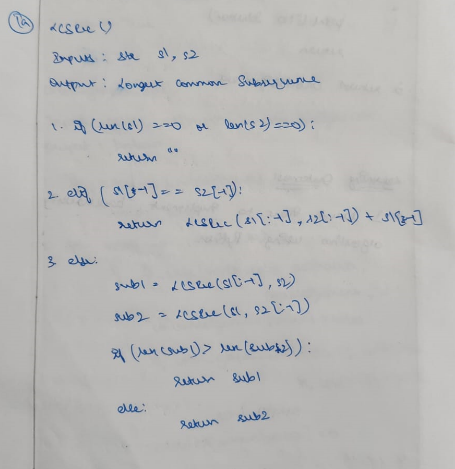 1a
LCSRec()
Inputs : str s1, s2
Output : Longest common Subsequence
1. if (len(s1) ==0 or len(s2)==0):
return ""
2. elif (s1[-1] == s2[-1]):
return LCSRec(s1[:-1], s2[:-1]) + s1[-1]
3. else:
sub1 = LCSRec(s1[:-1], s2)
sub2 = LCSRec(s1, s2[:-1])
if (len(sub1) > len(sub2)):
return sub1
else:
return sub2